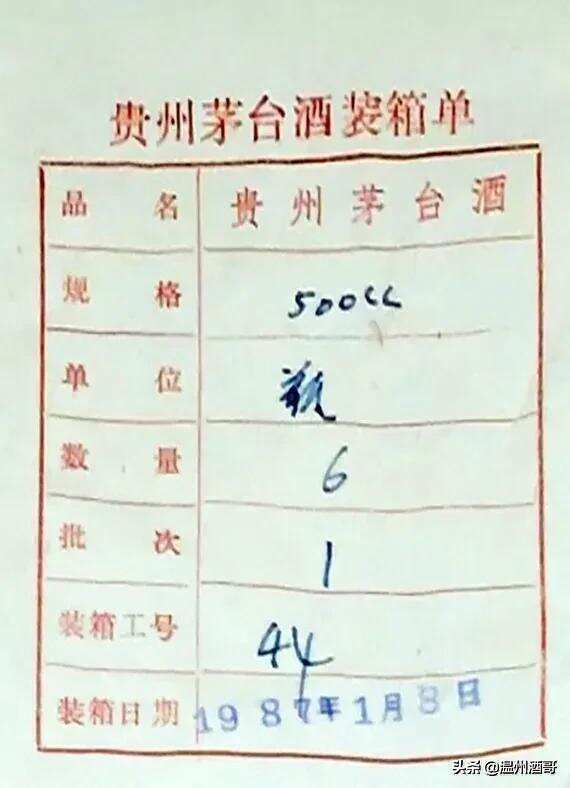 贵州茅台酒装箱单
品名 贵州茅台酒
规格 500cc
单位 瓶
数量 6
批次 1
装箱工号 44
装箱日期 1987年1月8日
头条 @温州酒哥